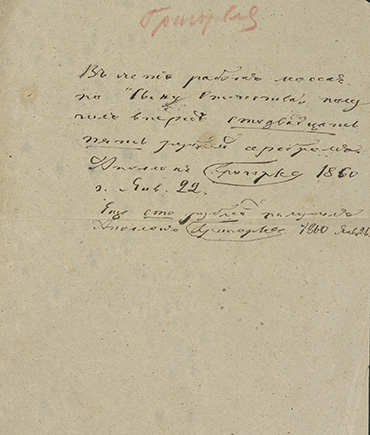 Григорьев
Въ счетъ работъ моихъ
по "Сыну Отечества" полу-
чилъ впередъ стодвадцать
пять рублей серебромъ.
Аполлонъ Григорьев 1860
г. Янв. 22.
Еще сто рублей получилъ
Аполлонъ Григорьев 1860 Янв. 26